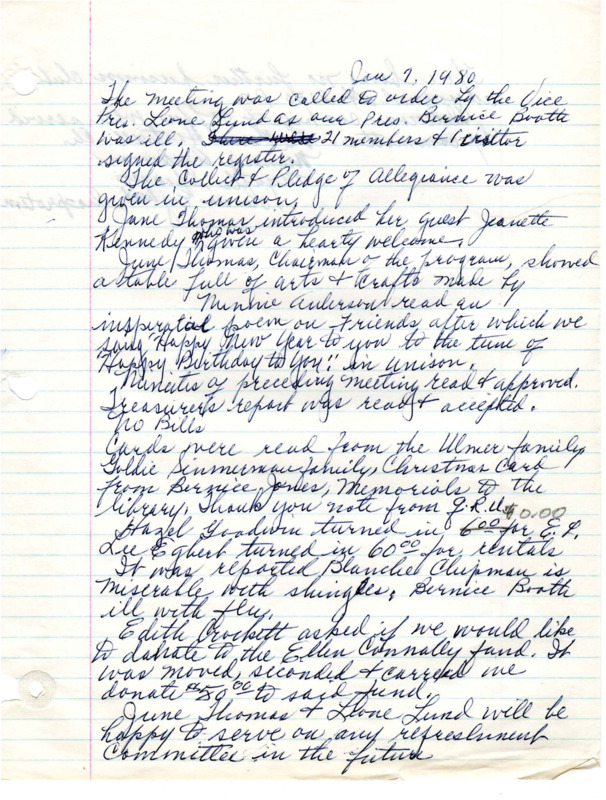 Jan 7, 1980
The meeting was called to order by the Vice
Pres. Leone Lund as our Pres. Bernice Booth
was ill. There were 21 members & 1 visitor
signed the register.
The Collect & Pledge of Allegiance was
given in unison.
Jane Thomas introduced her guest Jeanette
Kennedy who was given a hearty welcome.
June Thomas, Chairman o the program, showed
a table full of arts & crafts made by
Minnie Anderson read an
inspiratial poem on Friends, after which we
sang "Happy New Year to you to the tune of
"Happy Birthday to You!" in unison.
Minutes of preceding meeting read & approved.
Treasurer's report was read & accepted.
No Bills
Cards were read from the Ulmer family,
Goldie Simmerman family, Christmas Card
from Bernice Jones, Memorials to the
library, Thank you note from G.R.U.
Hazel Goodwin turned in 6.00 $10.00 for E. F.
Lee Egbert turned in 60.00 for rentals
It was reported Blanche Chipman is
miserable with shingles, Bernice Booth
ill with flu.
Edith Crockett asked if we would like
to donate to the Ellen Connally fund. It
was moved, seconded & carried we
donate $50.00 to said fund.
June Thomas & Leone Lund will be
happy to serve on any refreshment
Committee in the future